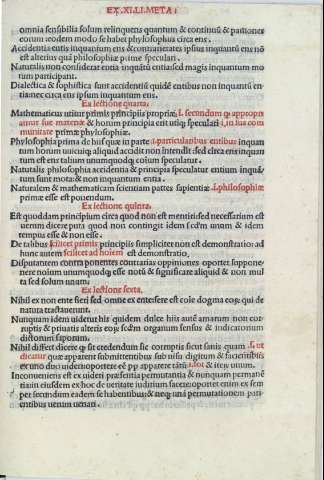 EX.XI.LI.META:
omnia sensibilia solum relinquens quantum & continuũ & passiones
eorum: eodem modo se habet phylosophus circa ens.
Accidentia eutis inquantum ens & contrarietates ipsius inquantũ ens nõ
est alterius quá philosophiæ primæ speculari.
Naturalis non considerat entia inquãtũ entia: sed magis inquantum mo
tum participant.
Dialectica & sophistica sunt accidentiũ quidé entibus non inquantũ en
tia: nec circa ens ipsum inquantum ens.
Ex lectione quarta.
Mathematicus utitur primis principiis propriæ i. secundum φ appropri
antur suæ materiæ & horum principia erit utiq; speculari i. in sua com
munitate primæ phylosophiæ.
Phylosophia prima de his quæ in parte i. particularibus entibus inquan
tum horum unicuiq; aliquid accidit non intendit: sed circa ens inquan
tum est ens talium unumquodq; eorum speculatur.
Naturalis philosophia accidentia & principia speculatur entium inquã
tum sunt motæ & non inquantum entia.
Naturalem & mathematicam scientiam partes sapientiæ i. philosophiæ
primæ esse est ponendum.
Ex lectione quinta.
Est quoddam principium circa quod non est mentiri: sed necessarium est
uerum dicere puta quod non contingit idem secundum unum & idem
tempus esse & non esse.
De talibus scilicet primis principiis simpliciter non est demonstratio: ad
hunc autem scilicet ad hoíem est demonstratio,
Disputantem contra ponentes contrarias oppiniones oportet suppone
nere noium unumquodq; esse notũ & significare aliquid & non mul
ta sed solum unum.
Ex lectione sexta.
Nihil ex non ente fieri sed omne ex ente: fere est cõe dogma eorũ qui de
natura tractauerunt.
Nunquam idem uidetur his quidem dulce hiis autê amarum non cor
ruptis & priuatis alteris eorum secundum organum sensus & indicatorium
dictorum saporum.
Nihil differt dicere φ sit credendum sic corruptis sicut sanis quam .s. ut
dicatur quæ apparent submittentibus sub uisu digitum & facientibus
ex uno duo uideri: oportere eé pp apparere tátũ .s. tot & iterum unum.
Inconueniens est ex uideri præsentia permutantia & nunquam permané
tia in eisdem ex hoc de ueritate iuditium facere: oportet enim ex sem
per secundum eadem se habentibus: & neq; una permutationem pati
entibus uerum uenari